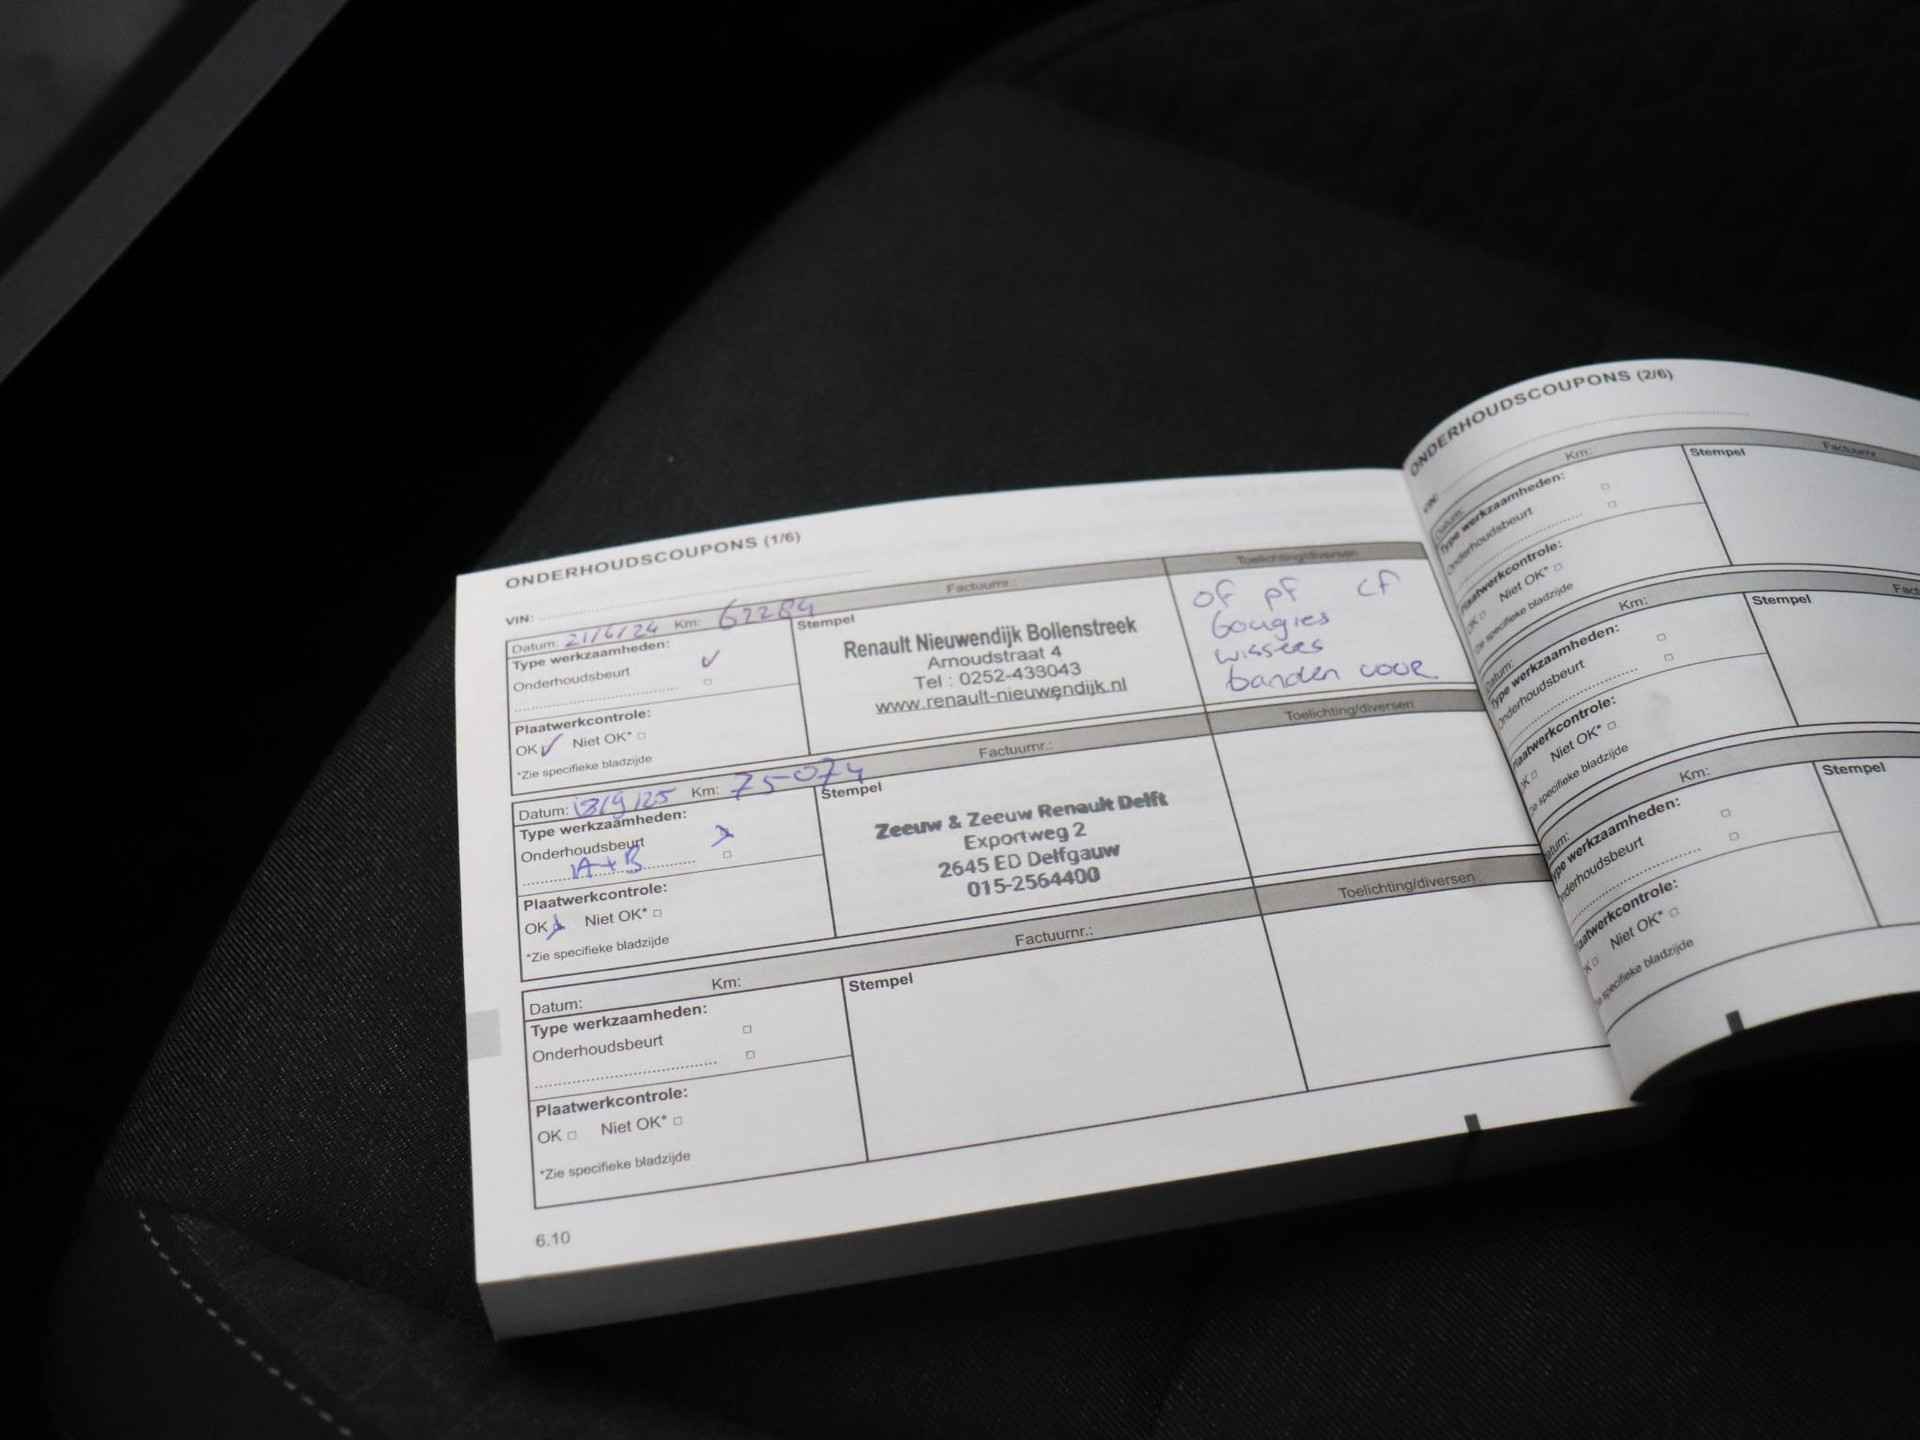 ONDERHOUDSCOUPONS (1/6)
VIN:
Factuurnr.:
Toelichting/diversen
Datum: 21/6/24 Km: 62284
Stempel
Type werkzaamheden:
Onderhoudsbeurt
Plaatwerkcontrole:
OK Niet OK*
*Zie specifieke bladzijde
Renault Nieuwendijk Bollenstreek
Arnoudstraat 4
Tel : 0252-433043
www.renault-nieuwendijk.nl
of pf cf
bougies
wissers
banden voor
Factuurnr.:
Toelichting/diversen
Datum: 18/9/25 Km: 75-074
Stempel
Type werkzaamheden:
Onderhoudsbeurt
A+B
Plaatwerkcontrole:
OK Niet OK*
*Zie specifieke bladzijde
Zeeuw & Zeeuw Renault Delft
Exportweg 2
2645 ED Delfgauw
015-2564400
Factuurnr.:
Toelichting/diversen
Datum: Km:
Stempel
Type werkzaamheden:
Onderhoudsbeurt
Plaatwerkcontrole:
OK Niet OK*
*Zie specifieke bladzijde
6.10
ONDERHOUDSCOUPONS (2/6)
VIN:
Datum: Km:
Stempel
Factuurnr.
Type werkzaamheden:
Onderhoudsbeurt
Plaatwerkcontrole:
OK Niet OK*
*Zie specifieke bladzijde
Datum: Km:
Stempel
Type werkzaamheden:
Onderhoudsbeurt
Plaatwerkcontrole:
OK Niet OK*
specifieke bladzijde
Km:
Stempel
werkzaamheden:
Onderhoudsbeurt
Niet OK*
specifieke bladzijde